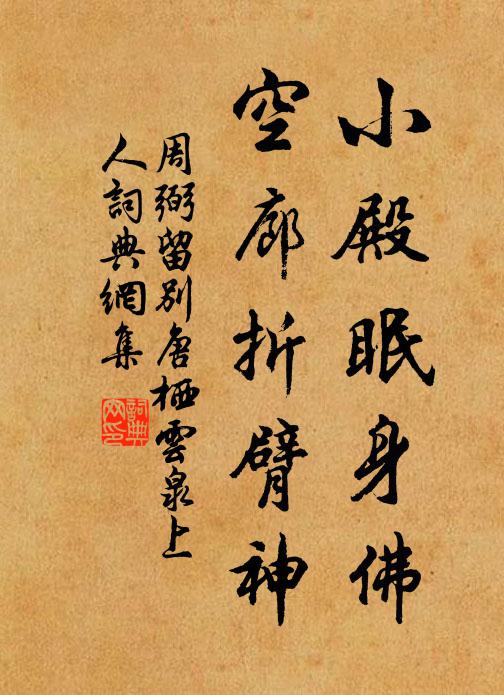 小殿眠身佛
空廊折臂神
周弼留別唐栖雲泉上
人詞典網集
詞典
网印